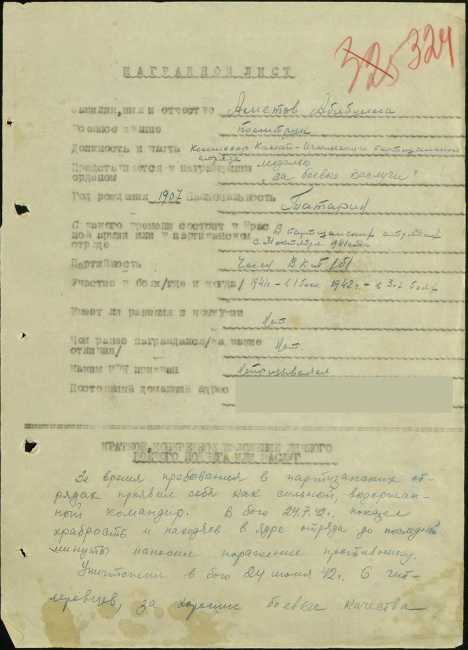 325 324
НАГРАДНОЙ ЛИСТ
Фамилия, имя и отчество Аметов Абибулла
Военное звание Политрук
Должность и часть Комиссар партизанского
отряда
Представляется к награждению медалью
орденом "за боевые заслуги"
Год рождения 1907 Национальность Татарин
С какого времени состоит в Крас
ной армии или в партизанском В партизанских отрядах
отряде с октября 1941
Партийность Член ВКП(б)
Участие в боях/где и когда/ 1941 - 1942г. -
Имеет ли ранения и контузии Нет
Чем ранее награждался/за какие
отличия/ Нет.
Каким РВК призван
Постоянный домашний адрес
КРАТКОЕ, КОНКРЕТНОЕ ИЗЛОЖЕНИЕ ЛИЧНОГО
БОЕВОГО ПОДВИГА ИЛИ ЗАСЛУГ
За время пребывания в партизанских от-
рядах проявил себя как сильный, выдержан-
ный командир. В бою 24.7.42. показал
храбрость и находясь в ядре отряда до последней
минуты наносил поражение противнику.
Уничтожил в бою 24 июля 42г. 6 гит-
леровцев, за хорошие боевые качества